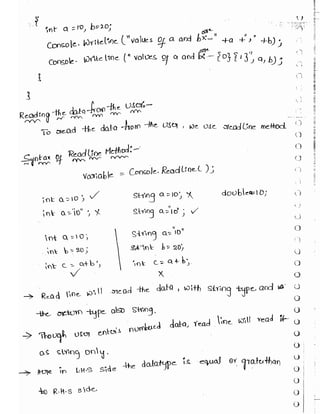 {
int a = 10, b=20;
Console. WriteLine ("values of a and b are" +a +","+b);
Console. WriteLine (" values of a and b are - {0} {1}", a, b);
}
}
Reading the data from the user:-
To read the data from the user, we use readLine method.
Syntax of ReadLine Method:-
Variable = Console. ReadLine( );
int a = 10; ✓ String a = 10; X double a=10;
int a = "10"; X String a = "10"; ✓
int a = 10; String a = "10"
int b = 20; int b = 20;
int c = a+b; int c = a+b;
✓ X
→ Read line will read the data, with string type and
the return type also String.
→ Though user enters numbered data, read line will read it
as string only.
→ in L.H.S side the datatype is equal or greater than
to R.H.S side.